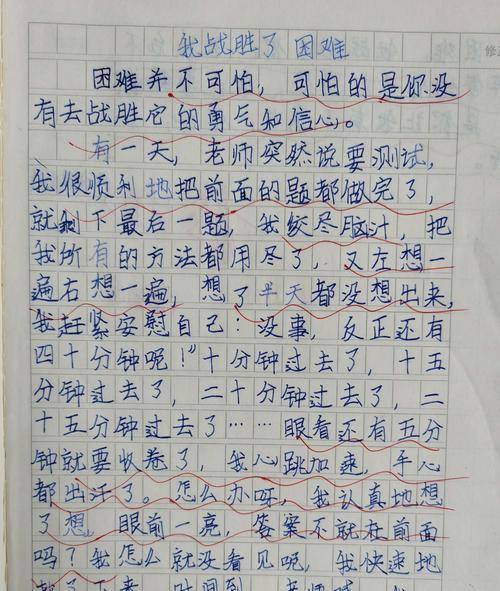 我战胜了困难
困难并不可怕，可怕的是你没
有去战胜它的勇气和信心。
有一天，老师突然说要测试，
我很顺利地把前面的题都做完了，
就剩下最后一题，我绞尽脑汁，把
我所有的方法都用尽了，又左想一
遍右想一遍，想了半天都没想出来，
我赶紧安慰自己：没事，反正还有
四十分钟呢！”十分钟过去了，十五
分钟过去了，二十分钟过去了，二
十五分钟过去了……眼看还有五分
钟就要收卷了，我心跳加速，手心
都出汗了。怎么办呀，我认真地想
了想，眼前一亮，答案不就在前面
吗？我怎么就没看见呢，我快速地